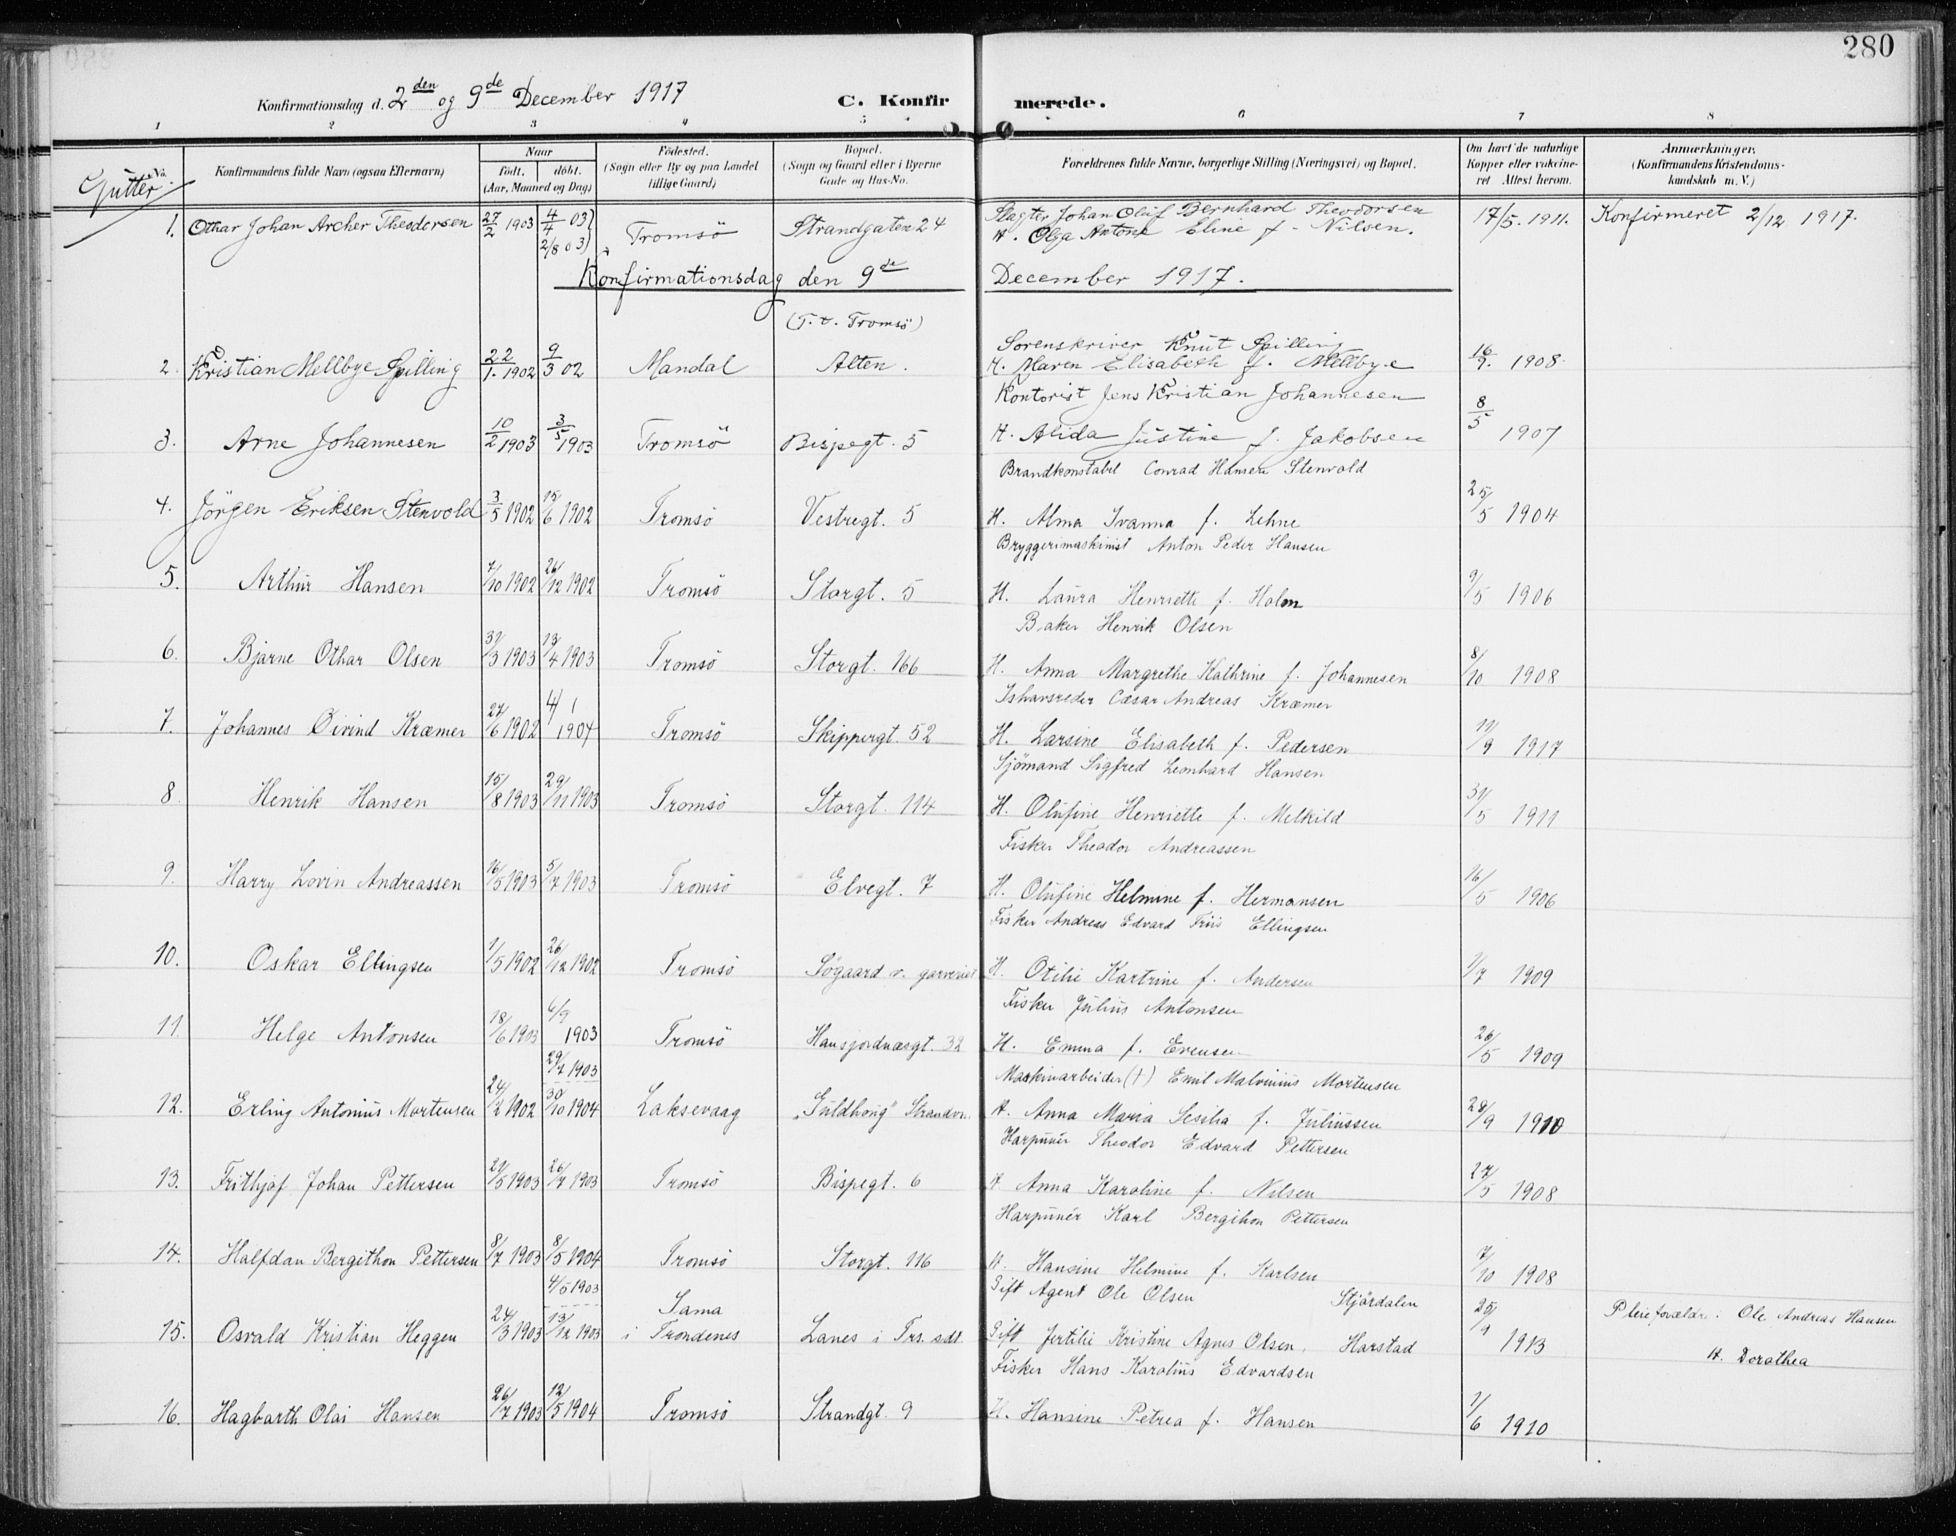 280
Konfirmationsdag d. 2den og 9de December 1917
C. Konfirmerede.
1 2 3 4 5 6 7 8
Gutter No.
Konfirmandens fulde Navn (ogsaa Efternavn)
Naar født. døbt. (Aar, Maaned og Dag)
Fødested. (Sogn eller By og paa Landet tillige Gaard)
Bopæl. (Sogn og Gaard eller i Byerne Gade og Hus-No.
Forældrenes fulde Navne, borgerlige Stilling (Næringsvei) og Bopæl.
Om havt de naturlige Kopper eller vaccineret Attest herom.
Anmærkninger. (Konfirmandens Kristendomskundskab m. V.)
1. Othar Johan Archer Theodorsen 27/2 1903 4/4 03 2/8 03 Tromsö Strandgaten 24 Slagter Johan Oluf Bernhard Theodorsen 17/5. 1911. Konfirmeret 2/12 1917.
H. Olga Antone Eline f. Nilsen.
Konfirmationsdag den 9de December 1917.
(T. v. Tromsö)
Sorenskriver Knut Spilling
2. Kristian Mellbye Spilling 22/1. 1902 9/3 02 Mandal Alten. H. Maren Elisabeth f. Mellbye 16/9. 1908
Kontorist Jens Kristian Johannesen
3. Arne Johannesen 10/2 1903 3/5 1903 Tromsö Bispegt. 5 H. Alida Justine f. Jakobsen 8/5 1907
Brandkonstabel Conrad Hansen Stenvold
4. Jörgen Eriksen Stenvold 3/5 1902 15/6 1902 Tromsö Vestregt. 5 H. Alma Ivanna f. Lehne 25/5 1904
Bryggerimaskinist Anton Peder Hansen
5. Arthur Hansen 7/10 1902 26/12 1902 Tromsö Storgt. 5 H. Laura Henriette f. Holm 9/5 1906
Baker Henrik Olsen
6. Bjarne Othar Olsen 31/3 1903 13/4 1903 Tromsö Storgt. 166 H. Anna Margrethe Kathrine f. Johannesen 8/10 1908
Ishavsreder Cæsar Andreas Kræmer
7. Johannes Öivind Kræmer 27/6 1902 4/1 1904 Tromsö Skippergt. 52 H. Larsine Elisabeth f. Pedersen 11/9 1917
Sjömand Sigfred Leonhard Hansen
8. Henrik Hansen 15/8 1903 29/11 1903 Tromsö Storgt. 114 H. Olufine Henriette f. Melkild 31/5 1911
Fisker Theodor Andreassen
9. Harry Lovin Andreassen 16/5 1903 5/7 1903 Tromsö Elvegt. 7 H. Olufine Helmine f. Hermansen 16/5 1906
Fisker Andreas Edvard Friis Ellingsen
10. Oskar Ellingsen 1/5 1902 26/12 1902 Tromsö Søgaard v. garveriet H. Otilie Kartrine f. Andersen 1/7 1909
Fisker Julius Antonsen
11. Helge Antonsen 18/6 1903 6/9 1903 Tromsö Hansjordnæsgt. 32 H. Emma f. Evensen 26/5 1909
29/7 1903 Maskinarbeider (†) Emil Malvinius Mortensen
12. Erling Antonius Mortensen 24/2 1902 30/10 1904 Laksevaag "Guldhaug" Strandvn. H. Anna Maria Sesilia f. Juliussen 28/9 1910
Harpunér Theodor Edvard Pettersen
13. Frithjof Johan Pettersen 21/5 1903 26/7 1903 Tromsö Bispegt. 6 H. Anna Karoline f. Nilsen 27/5 1908
Harpunér Karl Bergithon Pettersen
14. Halfdan Bergithon Pettersen 8/7 1903 8/5 1904 Tromsö Storgt. 116 H. Hansine Helmine f. Karlsen 7/10 1908
4/5 1903 Sama Gift Agent Ole Olsen Stjördalen Pleieforældr: Ole Andreas Hansen
15. Osvald Kristian Heggen 24/3 1903 13/12 1903 i Trondenes Lanes i Trs. sdt. Gift Jertilie Kristine Agnes Olsen, Harstad 25/9 1913 H. Dorathea
Fisker Hans Karolius Edvardsen
16. Hagbarth Olai Hansen 26/7 1903 12/5 1904 Tromsö Strandgt. 9 H. Hansine Petrea f. Hansen 1/6 1910